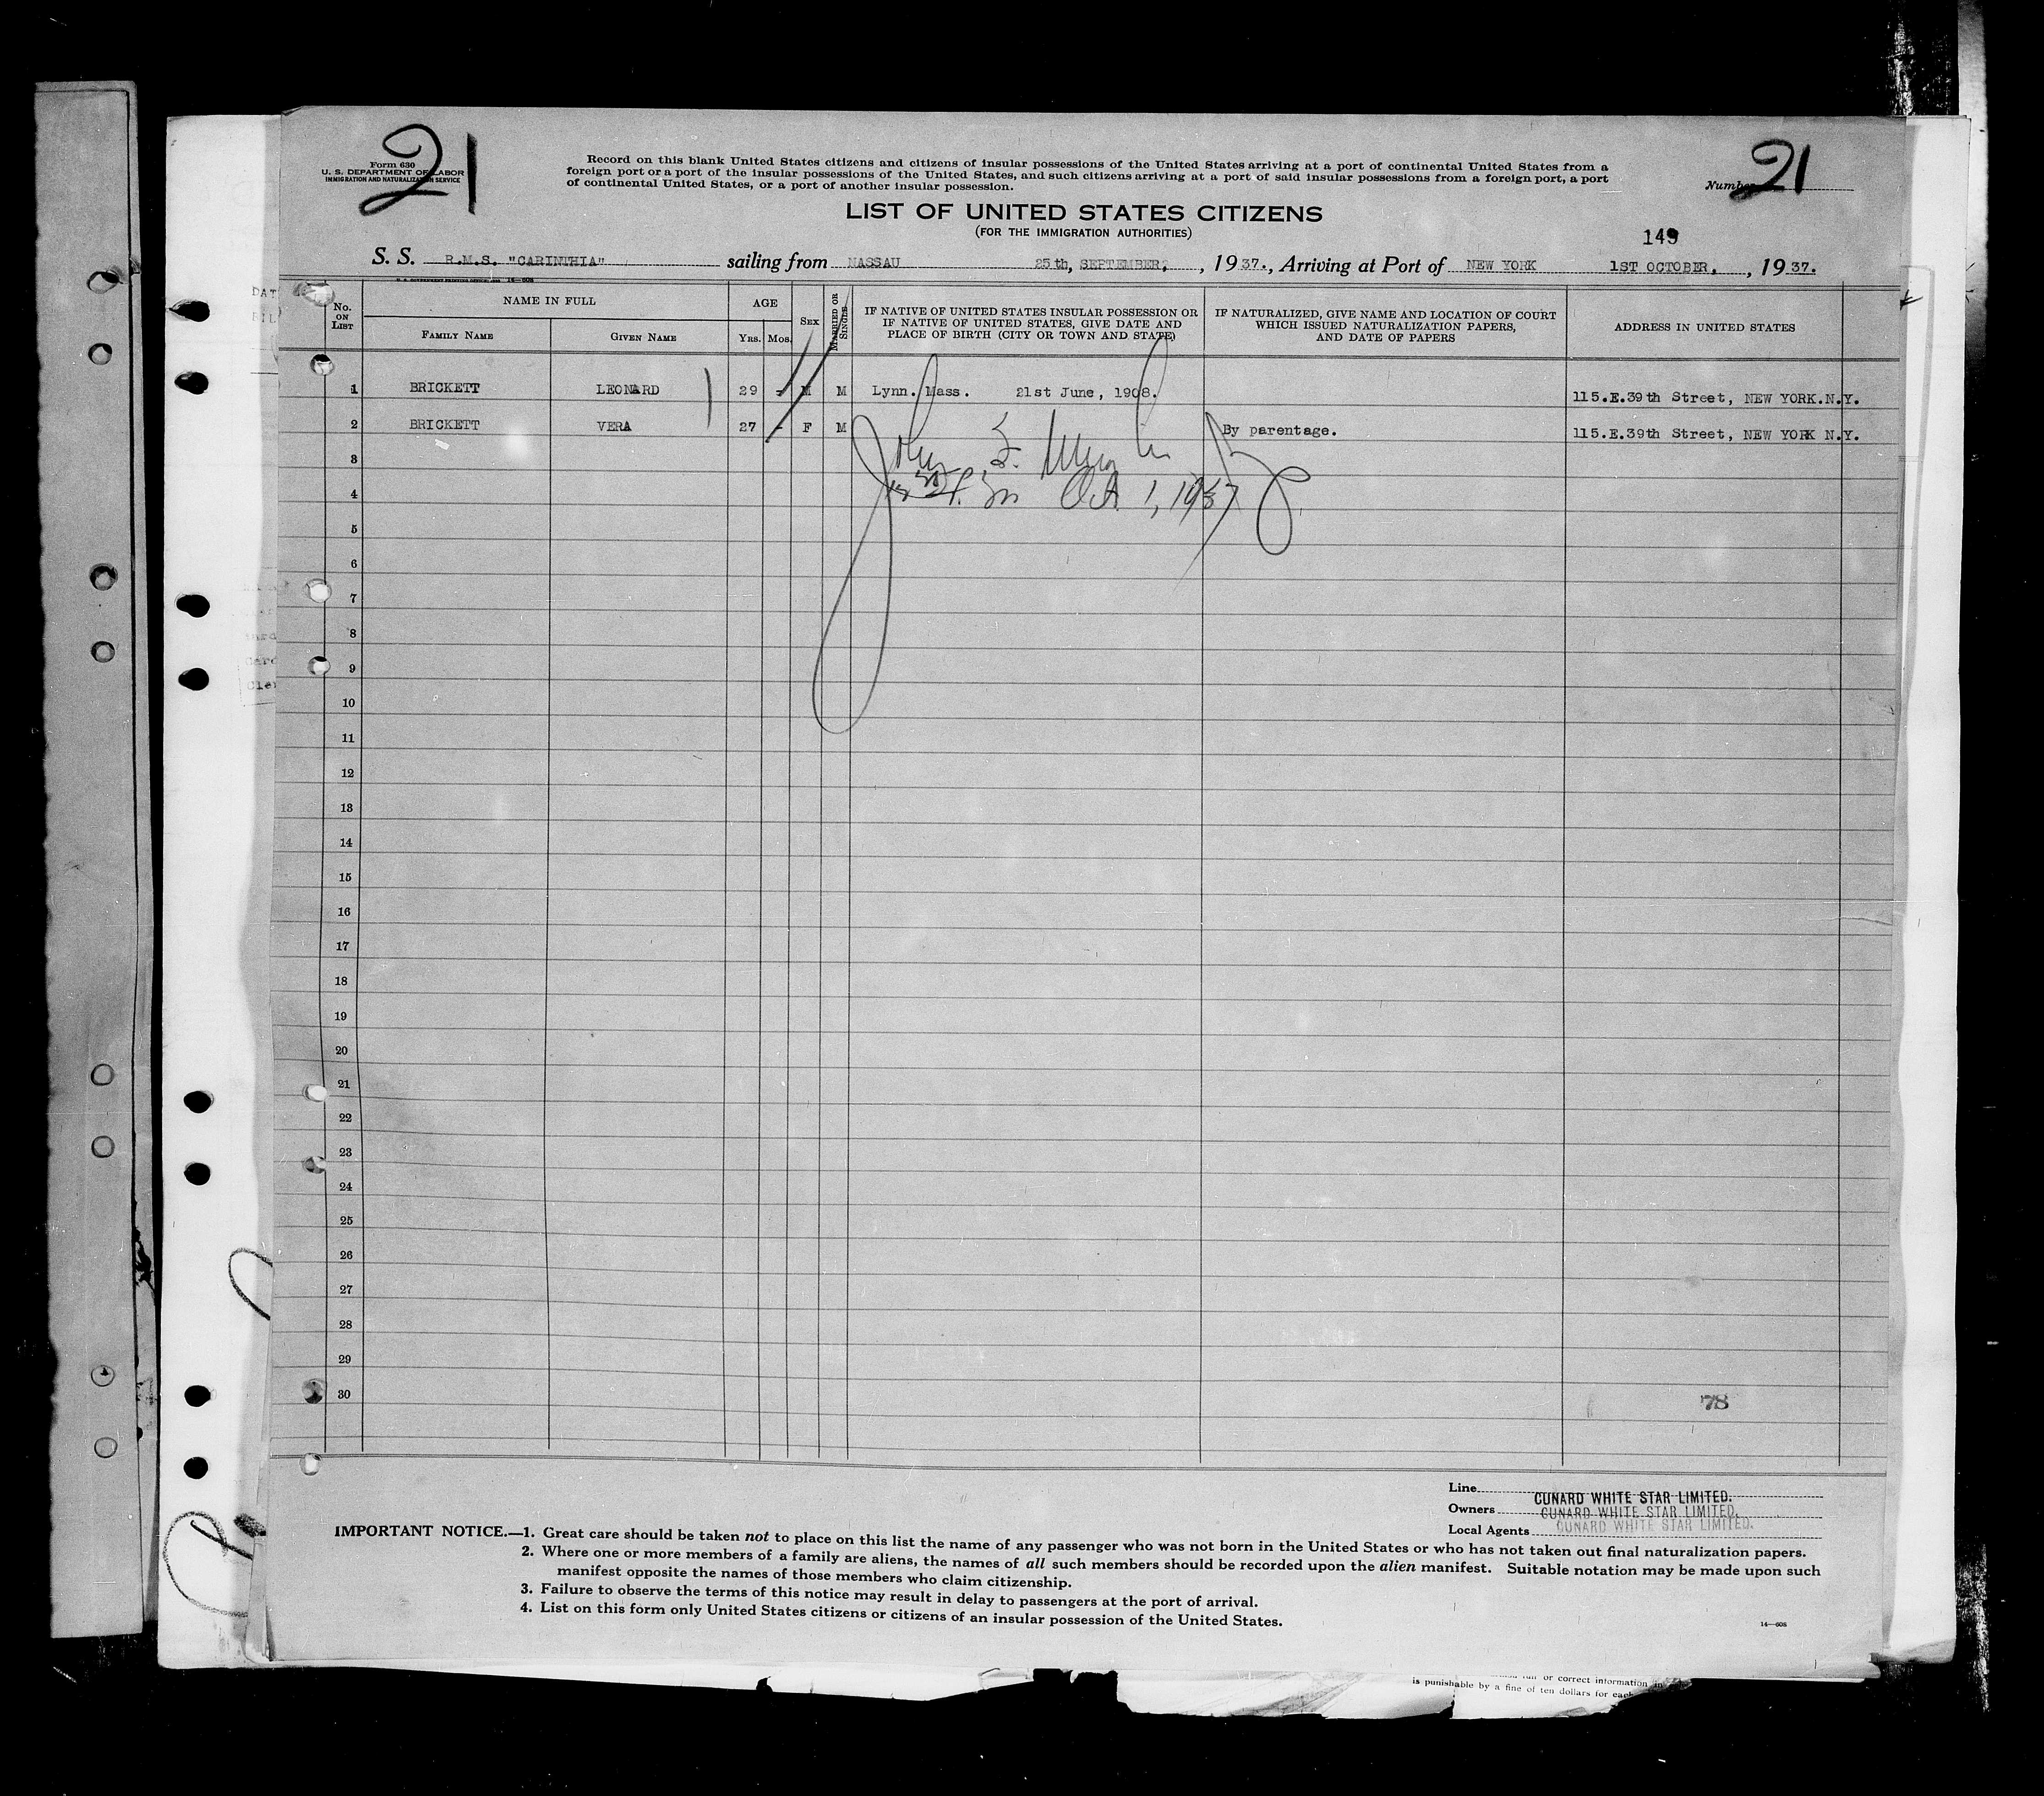 21
Form 630
U. S. DEPARTMENT OF LABOR
IMMIGRATION AND NATURALIZATION SERVICE
Record on this blank United States citizens and citizens of insular possessions of the United States arriving at a port of continental United States from a
foreign port or a port of the insular possessions of the United States, and such citizens arriving at a port of said insular possessions from a foreign port, a port
of continental United States, or a port of another insular possession.
Number 21
LIST OF UNITED STATES CITIZENS
(FOR THE IMMIGRATION AUTHORITIES)
149
S. S. R.M.S. "CARINTHIA" sailing from NASSAU 25th, SEPTEMBER, , 1937., Arriving at Port of NEW YORK 1ST OCTOBER. , 1937.
No. ON LIST
NAME IN FULL
FAMILY NAME
GIVEN NAME
AGE
YRS. MOS.
SEX
MARRIED OR SINGLE
IF NATIVE OF UNITED STATES INSULAR POSSESSION OR
IF NATIVE OF UNITED STATES, GIVE DATE AND
PLACE OF BIRTH (CITY OR TOWN AND STATE)
IF NATURALIZED, GIVE NAME AND LOCATION OF COURT
WHICH ISSUED NATURALIZATION PAPERS,
AND DATE OF PAPERS
ADDRESS IN UNITED STATES
1 BRICKETT LEONARD 29 - M M Lynn. Mass. 21st June, 1908. 115.E.39th Street, NEW YORK.N.Y.
2 BRICKETT VERA 27 - F M By parentage. 115.E.39th Street, NEW YORK N.Y.
3
4 Oct 1, 1937
5
6
7
8
9
10
11
12
13
14
15
16
17
18
19
20
21
22
23
24
25
26
27
28
29
30
78
Line CUNARD WHITE STAR LIMITED.
Owners CUNARD WHITE STAR LIMITED.
Local Agents CUNARD WHITE STAR LIMITED.
IMPORTANT NOTICE.—1. Great care should be taken not to place on this list the name of any passenger who was not born in the United States or who has not taken out final naturalization papers.
2. Where one or more members of a family are aliens, the names of all such members should be recorded upon the alien manifest. Suitable notation may be made upon such
manifest opposite the names of those members who claim citizenship.
3. Failure to observe the terms of this notice may result in delay to passengers at the port of arrival.
4. List on this form only United States citizens or citizens of an insular possession of the United States.
14—608
or correct information in
is punishable by a fine of ten dollars for each